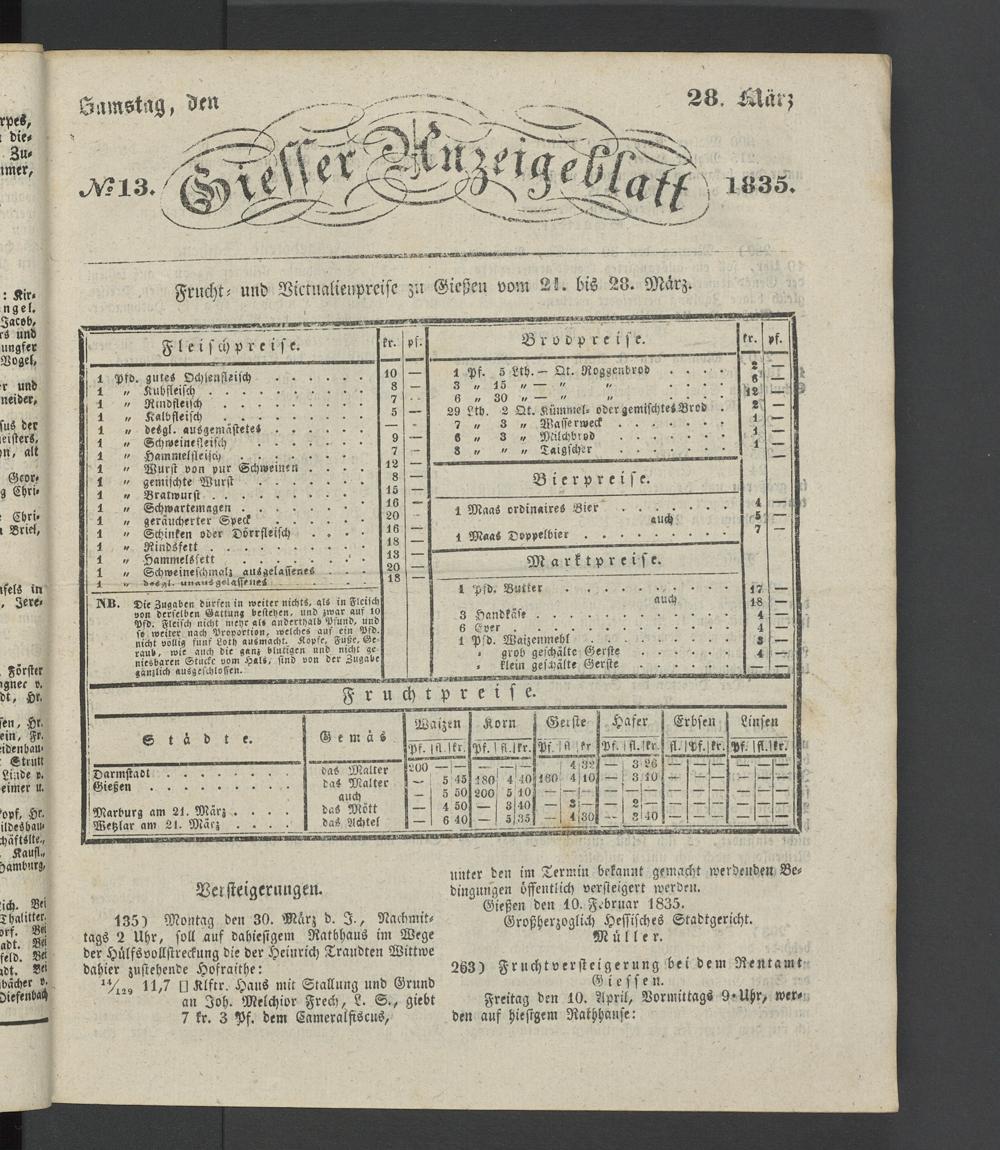 Samstag, den 28. März
№ 13. Giesser Anzeigeblatt 1835.
Frucht- und Victualienpreise zu Gießen vom 21. bis 28. März.
Fleischpreise. kr. pf.
1 Pfd. gutes Ochsenfleisch . . . . . . 10 —
1 „ Kuhfleisch . . . . . . . . 8 —
1 „ Rindfleisch . . . . . . . . 7 —
1 „ Kalbfleisch . . . . . . . . 5 —
1 „ desgl. ausgemästetes . . . . . . — -
1 „ Schweinefleisch . . . . . . . 9 —
1 „ Hammelsfleisch . . . . . . . 7 —
1 „ Wurst von pur Schweinen . . . . 12 —
1 „ gemischte Wurst . . . . . . . 8 —
1 „ Bratwurst . . . . . . . . . 15 —
1 „ Schwartemagen . . . . . . . 16 —
1 „ geräucherter Speck . . . . . . 20 -
1 „ Schinken oder Dörrfleisch . . . . 16 —
1 „ Rindsfett . . . . . . . . . 18 —
1 „ Hammelsfett . . . . . . . . 13 —
1 „ Schweineschmalz ausgelassenes . . . 20 —
1 „ desgl. unausgelassenes . . . . . 18 —
NB. Die Zugaben dürfen in weiter nichts, als in Fleisch
von derselben Gattung bestehen, und zwar auf 10
Pfd. Fleisch nicht mehr als anderthalb Pfund, und
so weiter nach Proportion, welches auf ein Pfd.
nicht völlig fünf Loth ausmacht. Köpfe, Füße, Ge-
raub, wie auch die ganz blutigen und nicht ge-
niesbaren Stücke vom Hals, sind von der Zugabe
gänzlich ausgeschlossen.
Brodpreise. kr. pf.
1 Pf. 5 Lth. — Qt. Roggenbrod . . . . 2 —
3 „ 15 „ — „ „ . . . . 6 —
6 „ 30 „ — „ „ . . . . 12 —
29 Lth. 2 Qt. Kümmel- oder gemischtes Brod . 2 —
7 „ 3 „ Wasserweck . . . . . . 1 —
6 „ 3 „ Milchbrod . . . . . . 1 —
8 „ „ „ Taigscher . . . . . . 1 —
Bierpreise.
1 Maas ordinaires Bier . . . . . . 4 —
auch 5 —
1 Maas Doppelbier . . . . . . . 7 —
Marktpreise.
1 Pfd. Butter . . . . . . . . 17 —
auch 18 —
3 Handkäse . . . . . . . . . 4 —
6 Eyer . . . . . . . . . . 4 —
1 Pfd. Waizenmehl . . . . . . . 4 —
„ grob geschälte Gerste . . . . . 3 —
„ klein geschälte Gerste . . . . . 4 —
Fruchtpreise.
Städte. Gemäs Waizen Korn Gerste Hafer Erbsen Linsen
Pf. fl. kr. Pf. fl. kr. Pf. fl. kr. Pf. fl. kr. fl. Pf. kr. Pf. fl. kr.
Darmstadt . . . . . . . das Malter 200 — — — — — 4 32 — 3 26 — — — — — —
Gießen . . . . . . . . das Malter — 5 45 180 4 40 160 4 10 — 3 10 — — — — — —
auch — 5 50 200 5 10
Marburg am 21. März . . . . das Mött — 4 50 — 3 40 — 3 — — 2 — — — — — — —
Wetzlar am 21. März . . . . das Achtel — 6 40 — 5 35 — 4 30 — 3 40 — — — — — —
Versteigerungen.
135) Montag den 30. März d. J., Nachmit-
tags 2 Uhr, soll auf dahiesigem Rathhaus im Wege
der Hülfsvollstreckung die der Heinrich Trandten Wittwe
dahier zustehende Hofraithe:
14/129 11,7 □ Klftr. Haus mit Stallung und Grund
an Joh. Melchior Frech, L. S., giebt
7 kr. 3 Pf. dem Cameralfiscus,
unter den im Termin bekannt gemacht werdenden Be-
dingungen öffentlich versteigert werden.
Gießen den 10. Februar 1835.
Großherzoglich Hessisches Stadtgericht.
Müller.
263) Fruchtversteigerung bei dem Rentamt
Giessen.
Freitag den 10. April, Vormittags 9 Uhr, wer-
den auf hiesigem Rathhause: